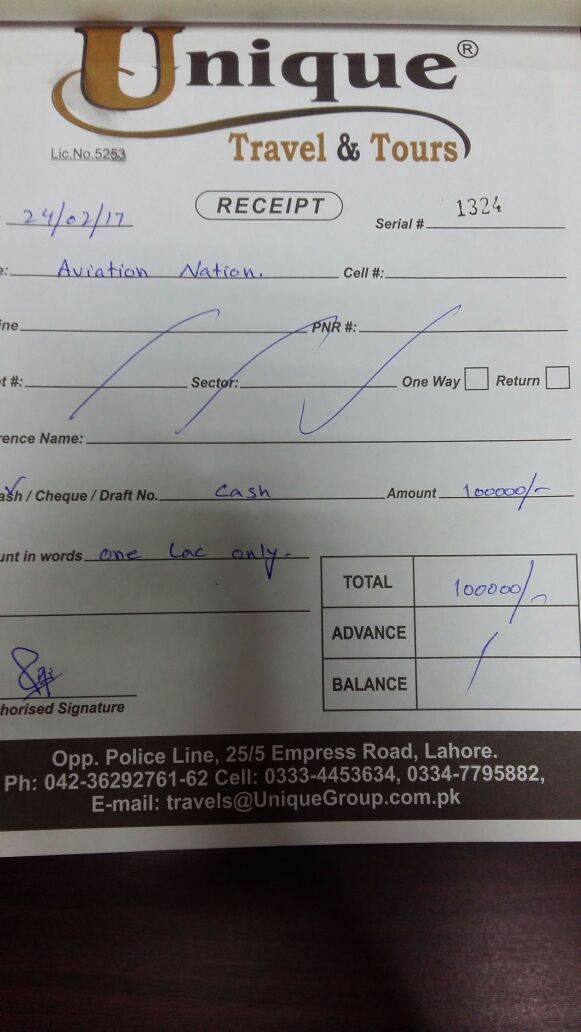 Unique®
Travel & Tours
Lic.No.5253
24/02/17 RECEIPT Serial # 1324
e: Aviation Nation. Cell #:
ine PNR #:
et #: Sector: One Way Return
rence Name:
ash / Cheque / Draft No. Cash Amount 100000/-
unt in words one Lac only-
TOTAL 100000/-
ADVANCE
BALANCE
horised Signature
Opp. Police Line, 25/5 Empress Road, Lahore.
Ph: 042-36292761-62 Cell: 0333-4453634, 0334-7795882,
E-mail: travels@UniqueGroup.com.pk